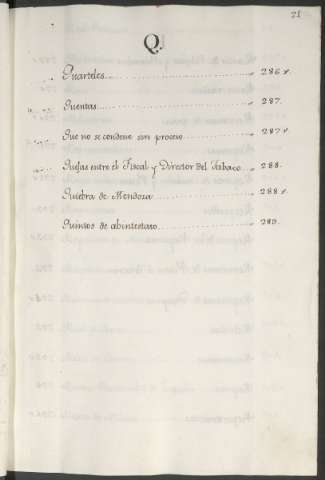 21
Q.
Quarteles 286 v.
Quentas 287.
Que no se condene sin proceso 287 v.
Quejas entre el Fiscal y Director del Tabaco 288.
Quiebra de Mendoza 288 v.
Quintos de abintestato 289.